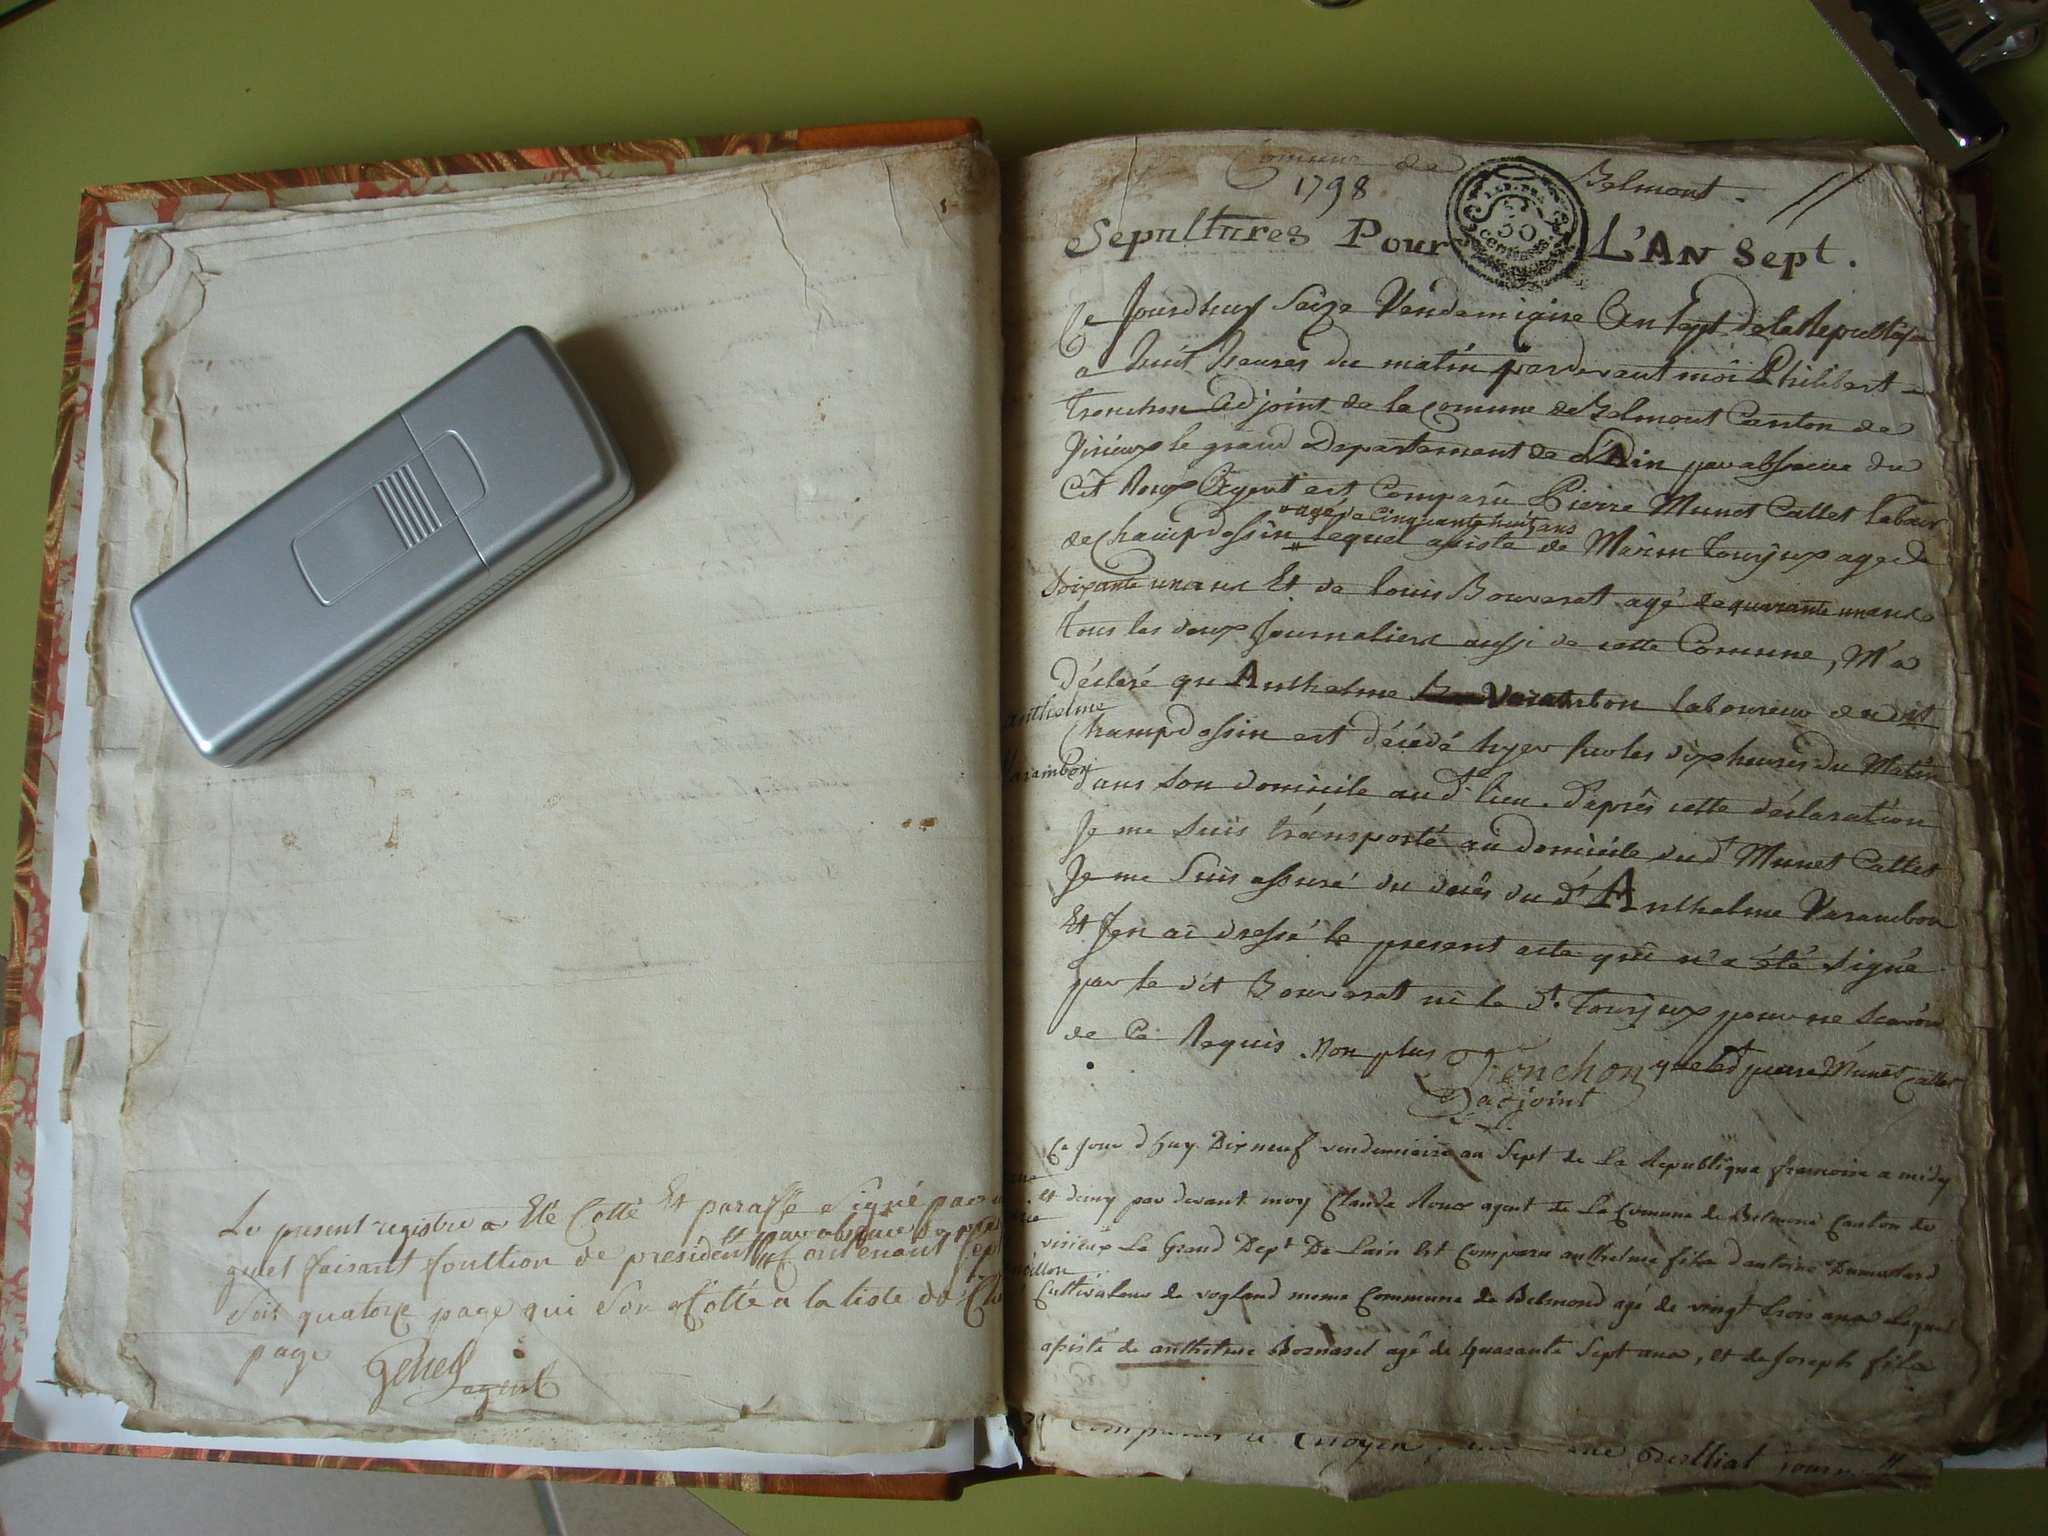 Le present registre a Eté Cotté Et paraffé Signé par
faisant fonction de president par absence
Soit quatorze page qui Son Cotté a la tiste de
page
agent
Comune de Belmont
1798
30
Sepultures Pour L'AN Sept.
Ce Jourdhuy Saize Vendemiaire An Sept de la Republique
a huit heures du matin pardevant moi Philibert
Tronchon Adjoint de la Comune de Belmont Canton de
Virieux le grand Departement de L'Ain par absence du
Cit Roux Agent est Comparu Pierre Munet Callet labour
agé de Cinquante huit ans
de Champdossin lequel assisté de Marin Tourjux age de
Soixante un ans Et de louis Bouverat agé de quarante un ans
tous les deux Journaliers aussi de cette Comune, M'a
déclaré qu'Anthelme Varambon laboureur dudit
anthelme
Varambon
Champdossin est décédé hyer sur les dix heures du Matin
dans son domicile aud. lieu. D'après cette déclaration
Je me suis transporté au domicile dud. Munet Callet
Je me Suis assuré du décès du dt Anthelme Varambon
Et J'en ai dressé le present acte qui n'a été Signé
par le dit Bouverat ni le dt. Tourjux pour ne Scavoir
de Ce Requis. Non plus que led pierre Munet Callet
Tronchon
adjoint
Ce Jour d huy Dix neuf vendemiaire an Sept de La Republique francoise a midy
et demy par devant moy Claude Roux agent de La Comune de Belmond Canton de
virieux Le Grand Dept De Lain Est Comparu anthelme fils d'antoine Dumollard
Cultivateur de vogland meme Commune de Belmond agé de vingt trois ans Lequel
assisté de anthelme Bornarel agé de quarante Sept ans, et de Joseph fils